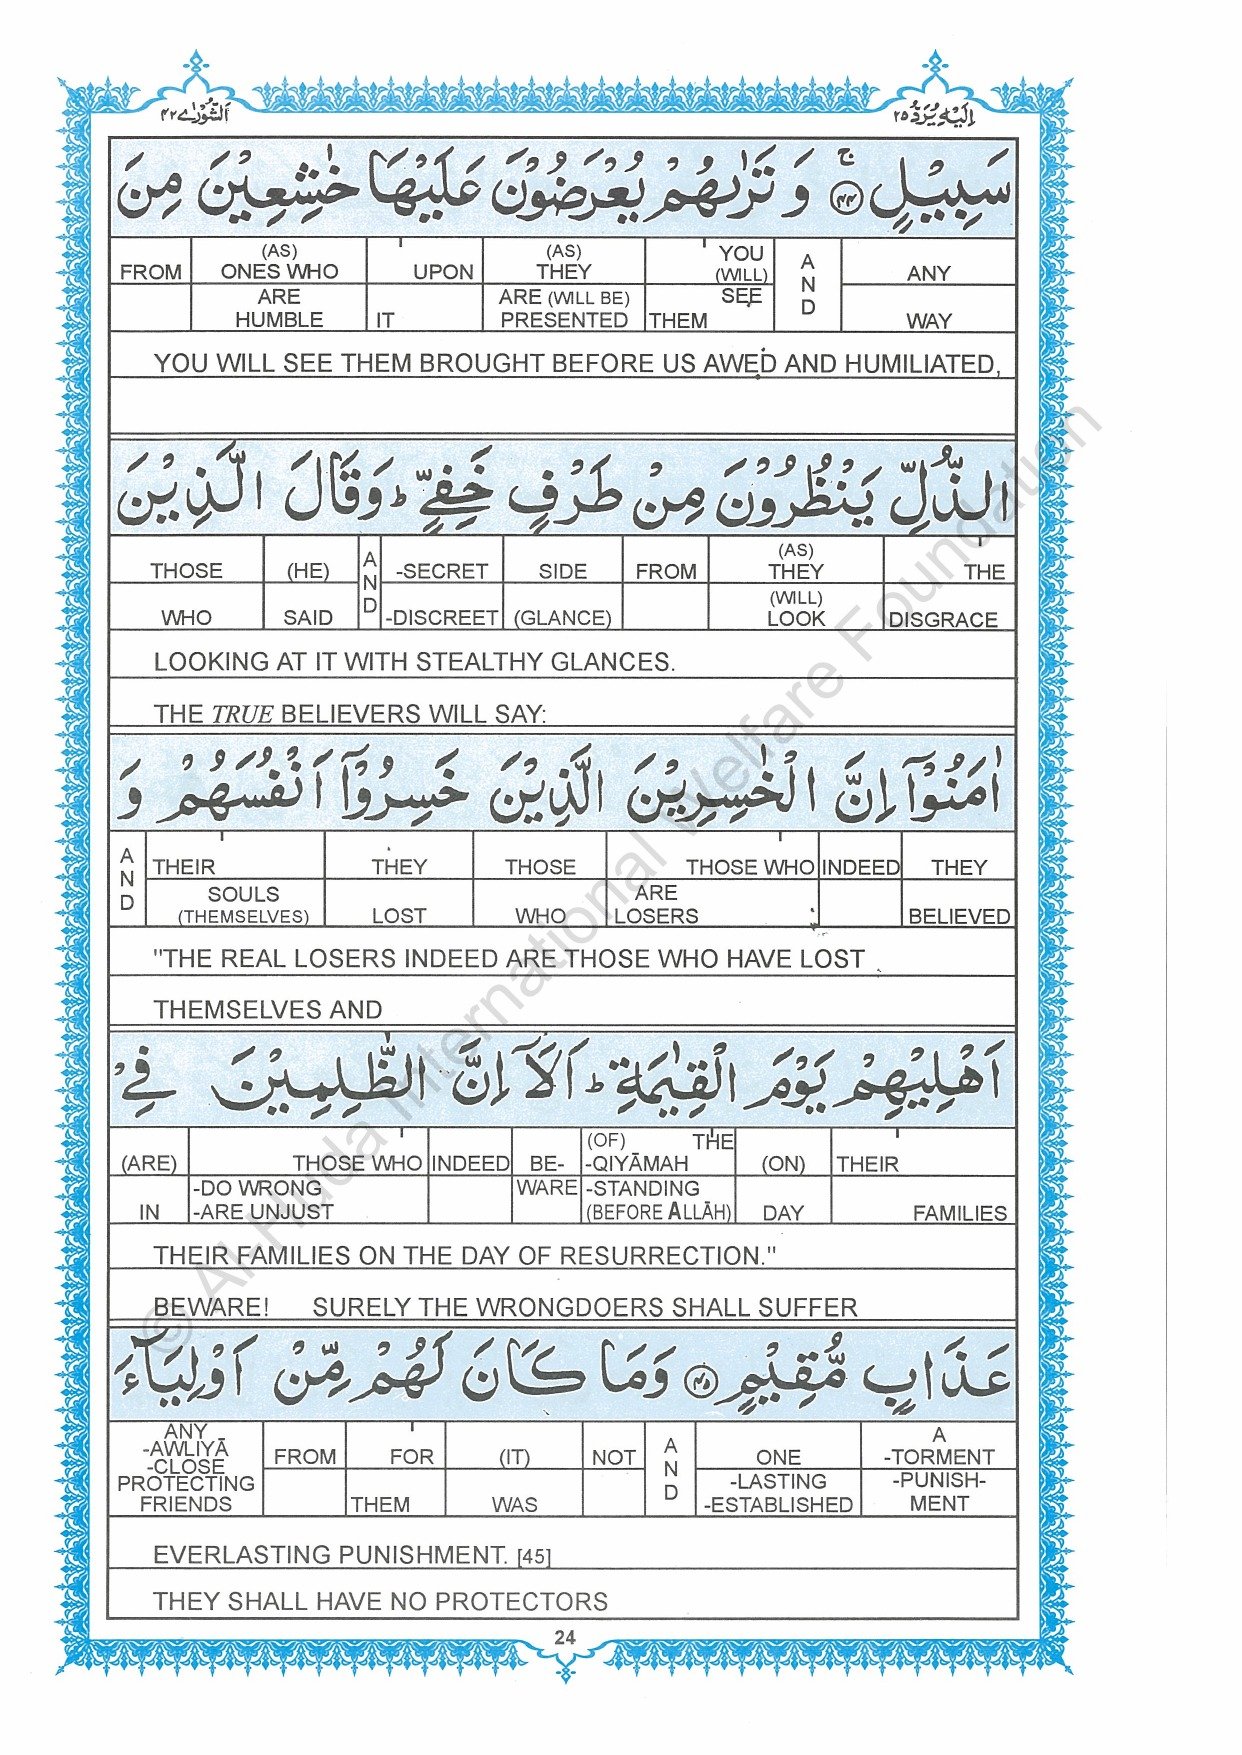 اَلشُّوْرٰے ۴۲
اِلَيْهِ يُرَدُّ ۲۵
سَبِيْلٍ ۚ ﴿۴۴﴾ وَ تَرٰىهُمْ يُعْرَضُوْنَ عَلَيْهَا خٰشِعِيْنَ مِنَ
FROM (AS) ONES WHO UPON (AS) THEY YOU (WILL) A N D ANY
ARE HUMBLE IT ARE (WILL BE) PRESENTED THEM SEE WAY
YOU WILL SEE THEM BROUGHT BEFORE US AWED AND HUMILIATED,
الذُّلِّ يَنْظُرُوْنَ مِنْ طَرْفٍ خَفِيٍّ ؕ وَقَالَ الَّذِيْنَ
THOSE (HE) A N D -SECRET SIDE FROM (AS) THEY THE
WHO SAID -DISCREET (GLANCE) (WILL) LOOK DISGRACE
LOOKING AT IT WITH STEALTHY GLANCES.
THE TRUE BELIEVERS WILL SAY:
اٰمَنُوْٓا اِنَّ الْخٰسِرِيْنَ الَّذِيْنَ خَسِرُوْٓا اَنْفُسَهُمْ وَ
A N D THEIR THEY THOSE THOSE WHO INDEED THEY
SOULS (THEMSELVES) LOST WHO ARE LOSERS BELIEVED
"THE REAL LOSERS INDEED ARE THOSE WHO HAVE LOST
THEMSELVES AND
اَهْلِيْهِمْ يَوْمَ الْقِيٰمَةِ ؕ اَلَآ اِنَّ الظّٰلِمِيْنَ فِيْ
(ARE) THOSE WHO INDEED BE- (OF) THE -QIYĀMAH (ON) THEIR
IN -DO WRONG -ARE UNJUST WARE -STANDING (BEFORE ALLĀH) DAY FAMILIES
THEIR FAMILIES ON THE DAY OF RESURRECTION."
BEWARE! SURELY THE WRONGDOERS SHALL SUFFER
عَذَابٍ مُّقِيْمٍ ﴿۴۵﴾ وَمَا كَانَ لَهُمْ مِّنْ اَوْلِيَآءَ
ANY -AWLIYĀ -CLOSE PROTECTING FRIENDS FROM FOR (IT) NOT A N D ONE A -TORMENT
THEM WAS -LASTING -ESTABLISHED -PUNISH- MENT
EVERLASTING PUNISHMENT. [45]
THEY SHALL HAVE NO PROTECTORS
24
© Al-Huda International Welfare Foundation